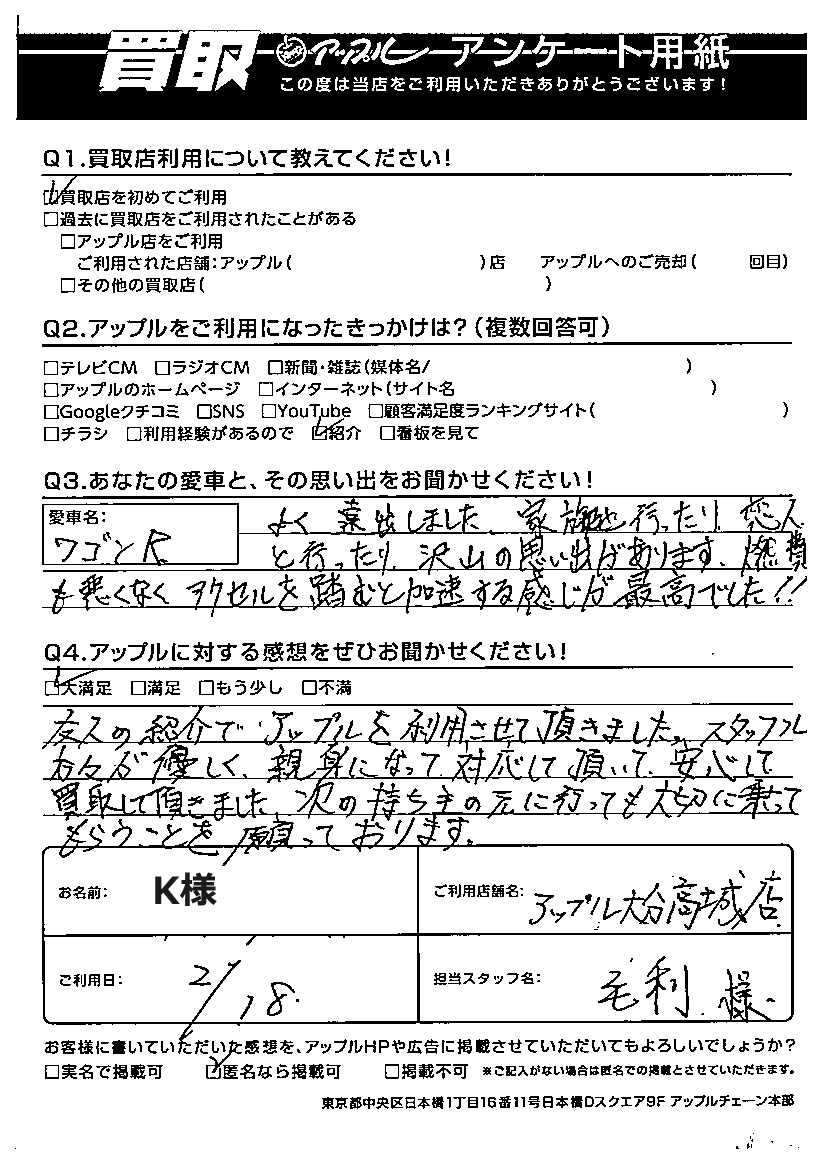 買取 アップル アンケート用紙
この度は当店をご利用いただきありがとうございます!
Q1.買取店利用について教えてください!
☑買取店を初めてご利用
□過去に買取店をご利用されたことがある
□アップル店をご利用
ご利用された店舗:アップル( )店 アップルへのご売却( 回目)
□その他の買取店( )
Q2.アップルをご利用になったきっかけは?(複数回答可)
□テレビCM □ラジオCM □新聞・雑誌(媒体名/ )
□アップルのホームページ □インターネット(サイト名 )
□Googleクチコミ □SNS □YouTube □顧客満足度ランキングサイト( )
□チラシ □利用経験があるので ☑紹介 □看板を見て
Q3.あなたの愛車と、その思い出をお聞かせください!
愛車名:
ワゴンR
よく遠出しました。家族と行ったり、恋人
と行ったり、沢山の思い出があります。燃費
も悪くなく アクセルを踏むと加速する感じが最高でした!!
Q4.アップルに対する感想をぜひお聞かせください!
☑大満足 □満足 □もう少し □不満
友人の紹介で アップルを利用させて頂きました。スタッフの
方々が優しく、親身になって対応して頂いて、安心して
買取して頂きました。次の持ち手の元に行っても大切に乗って
もらうことを願っております。
お名前: K様
ご利用店舗名: アップル大分高城店
ご利用日: 2/18
担当スタッフ名: 毛利 様
お客様に書いていただいた感想を、アップルHPや広告に掲載させていただいてもよろしいでしょうか?
□実名で掲載可 ☑匿名なら掲載可 □掲載不可 ※ご記入がない場合は匿名での掲載とさせていただきます。
東京都中央区日本橋1丁目16番11号日本橋Dスクエア9F アップルチェーン本部